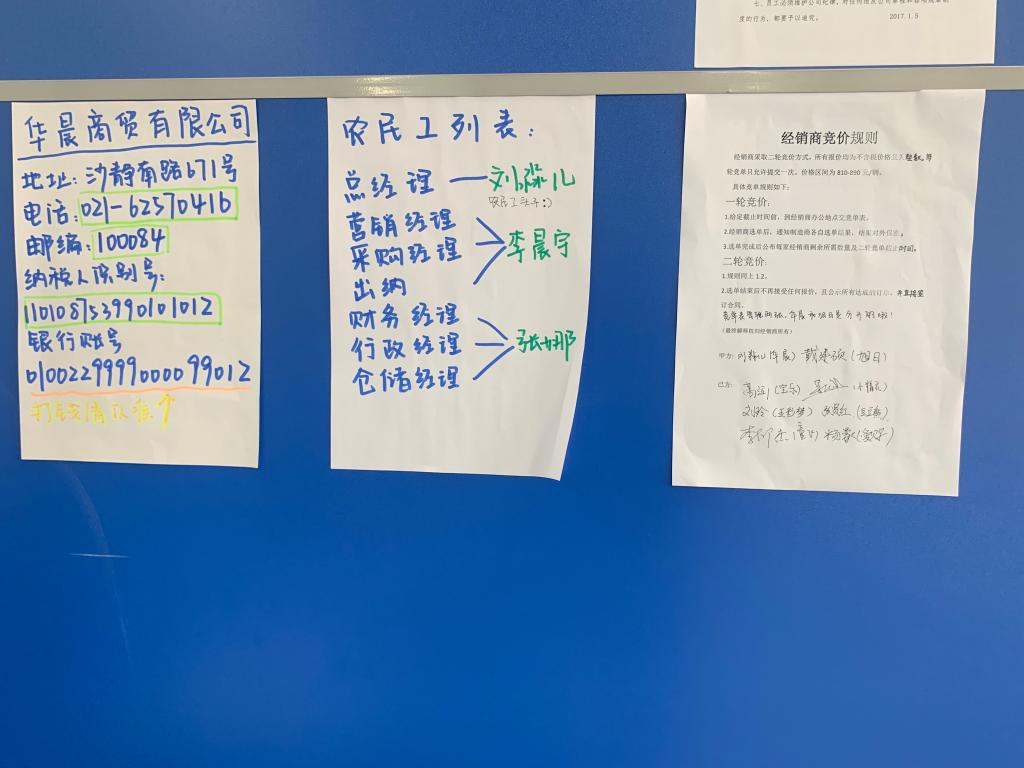 七、员工必须维护公司纪律，对任何违反公司章程和各项规章制
度的行为，都要予以追究。 2017.1.5
华晨商贸有限公司
地址：沙静南路671号
电话：021-62570416
邮编：100084
纳税人识别号：
110108753990101012
银行账号
0100229999000099012
打钱请认准↑
农民工列表：
总经理 — 刘淼儿
农民工头子：)
营销经理
采购经理 李晨宇
出纳
财务经理
行政经理 张娜
仓储经理
经销商竞价规则
经销商采取二轮竞价方式，所有报价均为不含税价格且为整数，每
轮竞单只允许提交一次。价格区间为 810-890 元/辆。
具体竞单规则如下：
一轮竞价：
1.给定截止时间前，到经销商办公地点交竞单表。
2.经销商选单后，通知制造商各自选单结果，结果对外保密。
3.选单完成后公布每家经销商剩余所需数量及二轮竞单截止时间。
二轮竞价：
1.规则同上 1.2。
2.选单结束后不再接受任何报价，且公示所有达成的订单，并直接签
订合同。
（最终解释权归经销商所有）
甲方：
乙方：